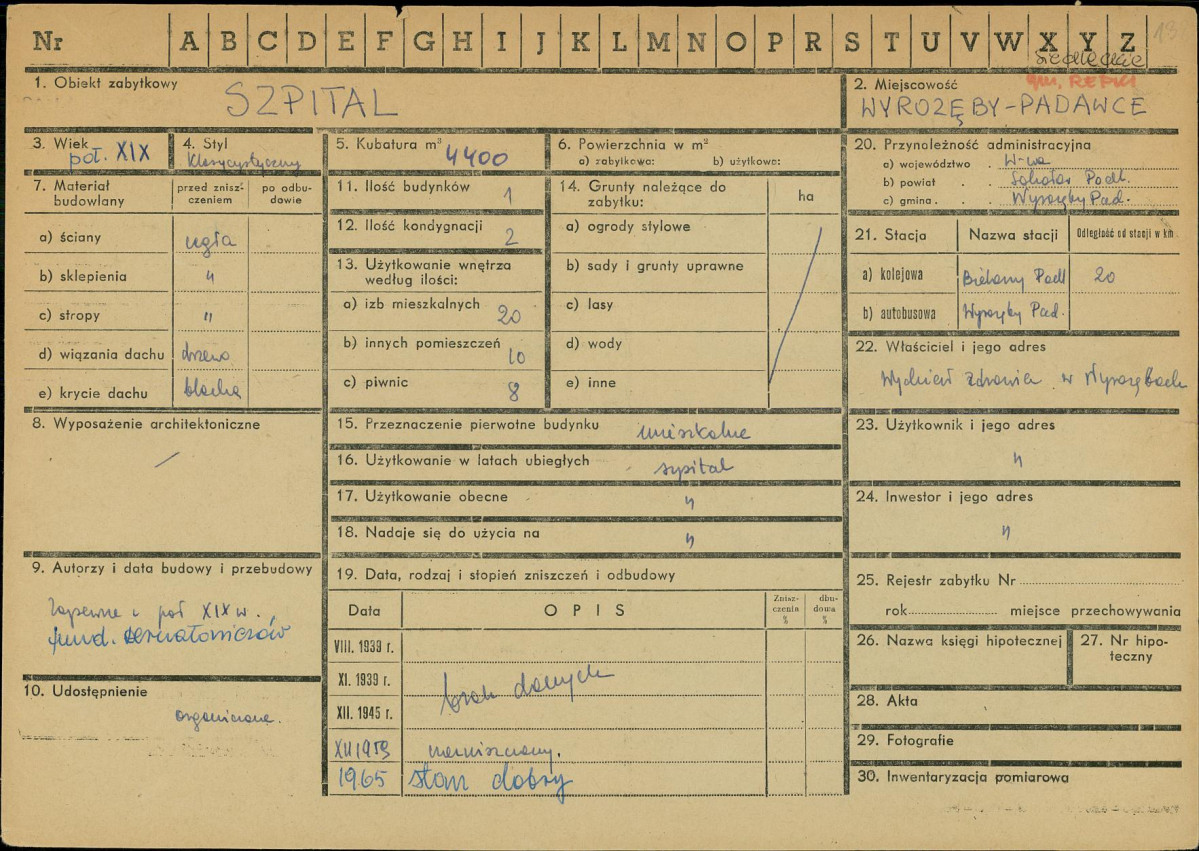 Nr A B C D E F G H I J K L M N O P R S T U V W X Y Z
siedleckie
gm. REPKI
1. Obiekt zabytkowy
SZPITAL
2. Miejscowość
WYROZĘBY-PADAWCE
3. Wiek
poł. XIX
4. Styl
klasycystyczny
5. Kubatura m³ 4400
6. Powierzchnia w m²
a) zabytkowa: b) użytkowa:
20. Przynależność administracyjna
a) województwo W-wa
b) powiat Sokołów Podl.
c) gmina Wyrozęby Pad.
7. Materiał budowlany
przed zniszczeniem
po odbudowie
a) ściany cegła
b) sklepienia "
c) stropy "
d) wiązania dachu drzewo
e) krycie dachu blacha
11. Ilość budynków 1
12. Ilość kondygnacji 2
13. Użytkowanie wnętrza
według ilości:
a) izb mieszkalnych 20
b) innych pomieszczeń 10
c) piwnic 8
14. Grunty należące do
zabytku:
ha
a) ogrody stylowe
b) sady i grunty uprawne
c) lasy
d) wody
e) inne
21. Stacja Nazwa stacji Odległość od stacji w km
a) kolejowa Bielany Podl 20
b) autobusowa Wyrozęby Pad.
22. Właściciel i jego adres
Wydział Zdrowia w Wyrozębach
8. Wyposażenie architektoniczne
—
15. Przeznaczenie pierwotne budynku mieszkalne
16. Użytkowanie w latach ubiegłych szpital
17. Użytkowanie obecne "
18. Nadaje się do użycia na "
23. Użytkownik i jego adres
"
24. Inwestor i jego adres
"
9. Autorzy i data budowy i przebudowy
Zapewne i poł XIX w.
fund.
10. Udostępnienie
ograniczone.
19. Data, rodzaj i stopień zniszczeń i odbudowy
Data OPIS Zniszczenia % dbudowa %
VIII. 1939 r.
XI. 1939 r. brak danych
XII. 1945 r.
XII 1959 niezniszczony.
1965 stan dobry
25. Rejestr zabytku Nr
rok miejsce przechowywania
26. Nazwa księgi hipotecznej
27. Nr hipoteczny
28. Akta
29. Fotografie
30. Inwentaryzacja pomiarowa